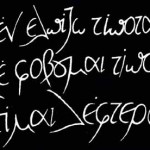 εν ελπίζω τίποτα
ε φοβȣμαι τίπο
ίμαι λέφτερο